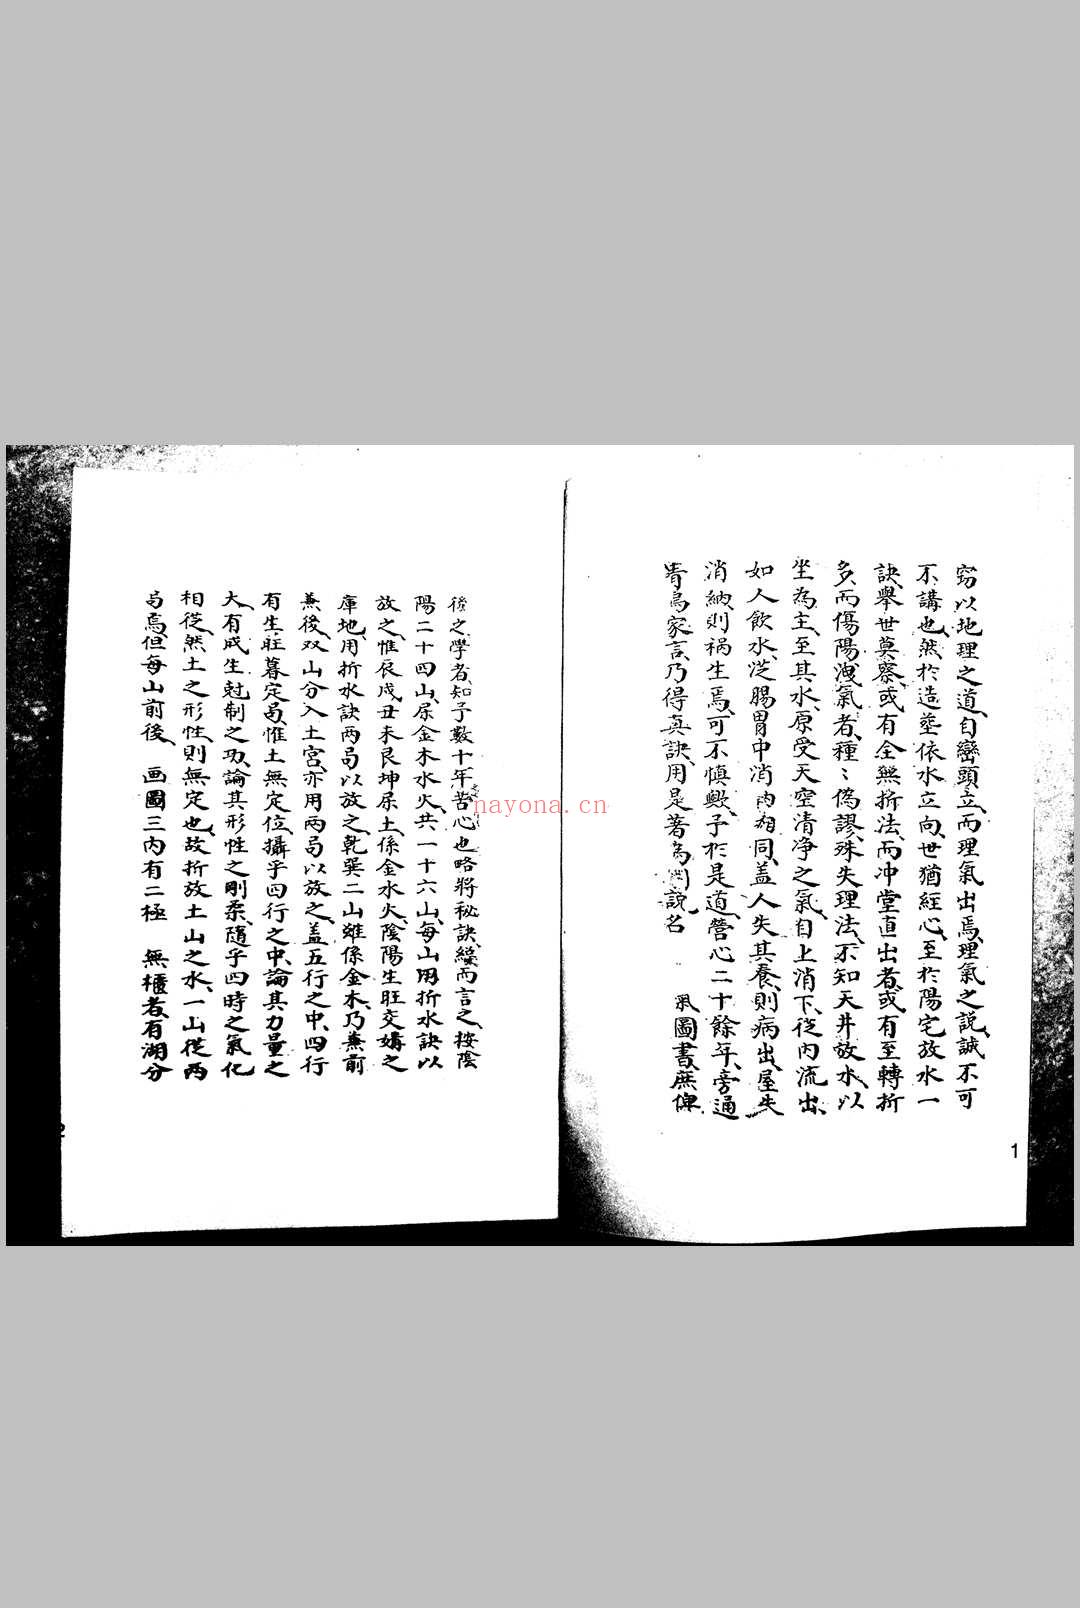 窃以地理之道、自巒頭立、而理氣出焉、理氣之説、誠不可
不講也、然於造塟依水立向、世猶經心、至於陽宅放水一
訣、舉世莫察、或有全無折法、而冲堂直出者、或有至轉折
多、而傷陽洩氣者、種〻偽謬、殊失理法、不知天井放水、以
坐為主、至其水、原受天空清净之氣、自上消下、從内流出、
如人飲水、從腸胃中消内相同、盖人失其養、則病出、屋失
消納、則禍生焉、可不慎歟、予於是道、營心二十餘年、旁通
青烏家言、乃得真訣、用是著為圖説、名 氣圖書、庶俾
1
後之學者、知予數十年苦心也、略將秘訣、縷而言之、按陰
陽二十四山、屬金木水火、共一十六山、每山用折水訣以
放之、惟辰戌丑未艮坤屬土、係金水火、陰陽生旺交媾之
庫地、用折水訣兩局以放之、乾巽二山雖係金木、乃兼前
兼後、双山分入土宮、亦用兩局以放之、盖五行之中、四行
有生旺暮定局、惟土無定位、攝乎四行之中、論其力量之
大、有成生尅制之功、論其形性之剛柔、隨乎四時之氣化
相從、然土之形性、則無定也、故折放土山之水、一山從两
局焉、但每山前後 画圖三内有二極 無櫃者、有湖分
2
nayona.cn